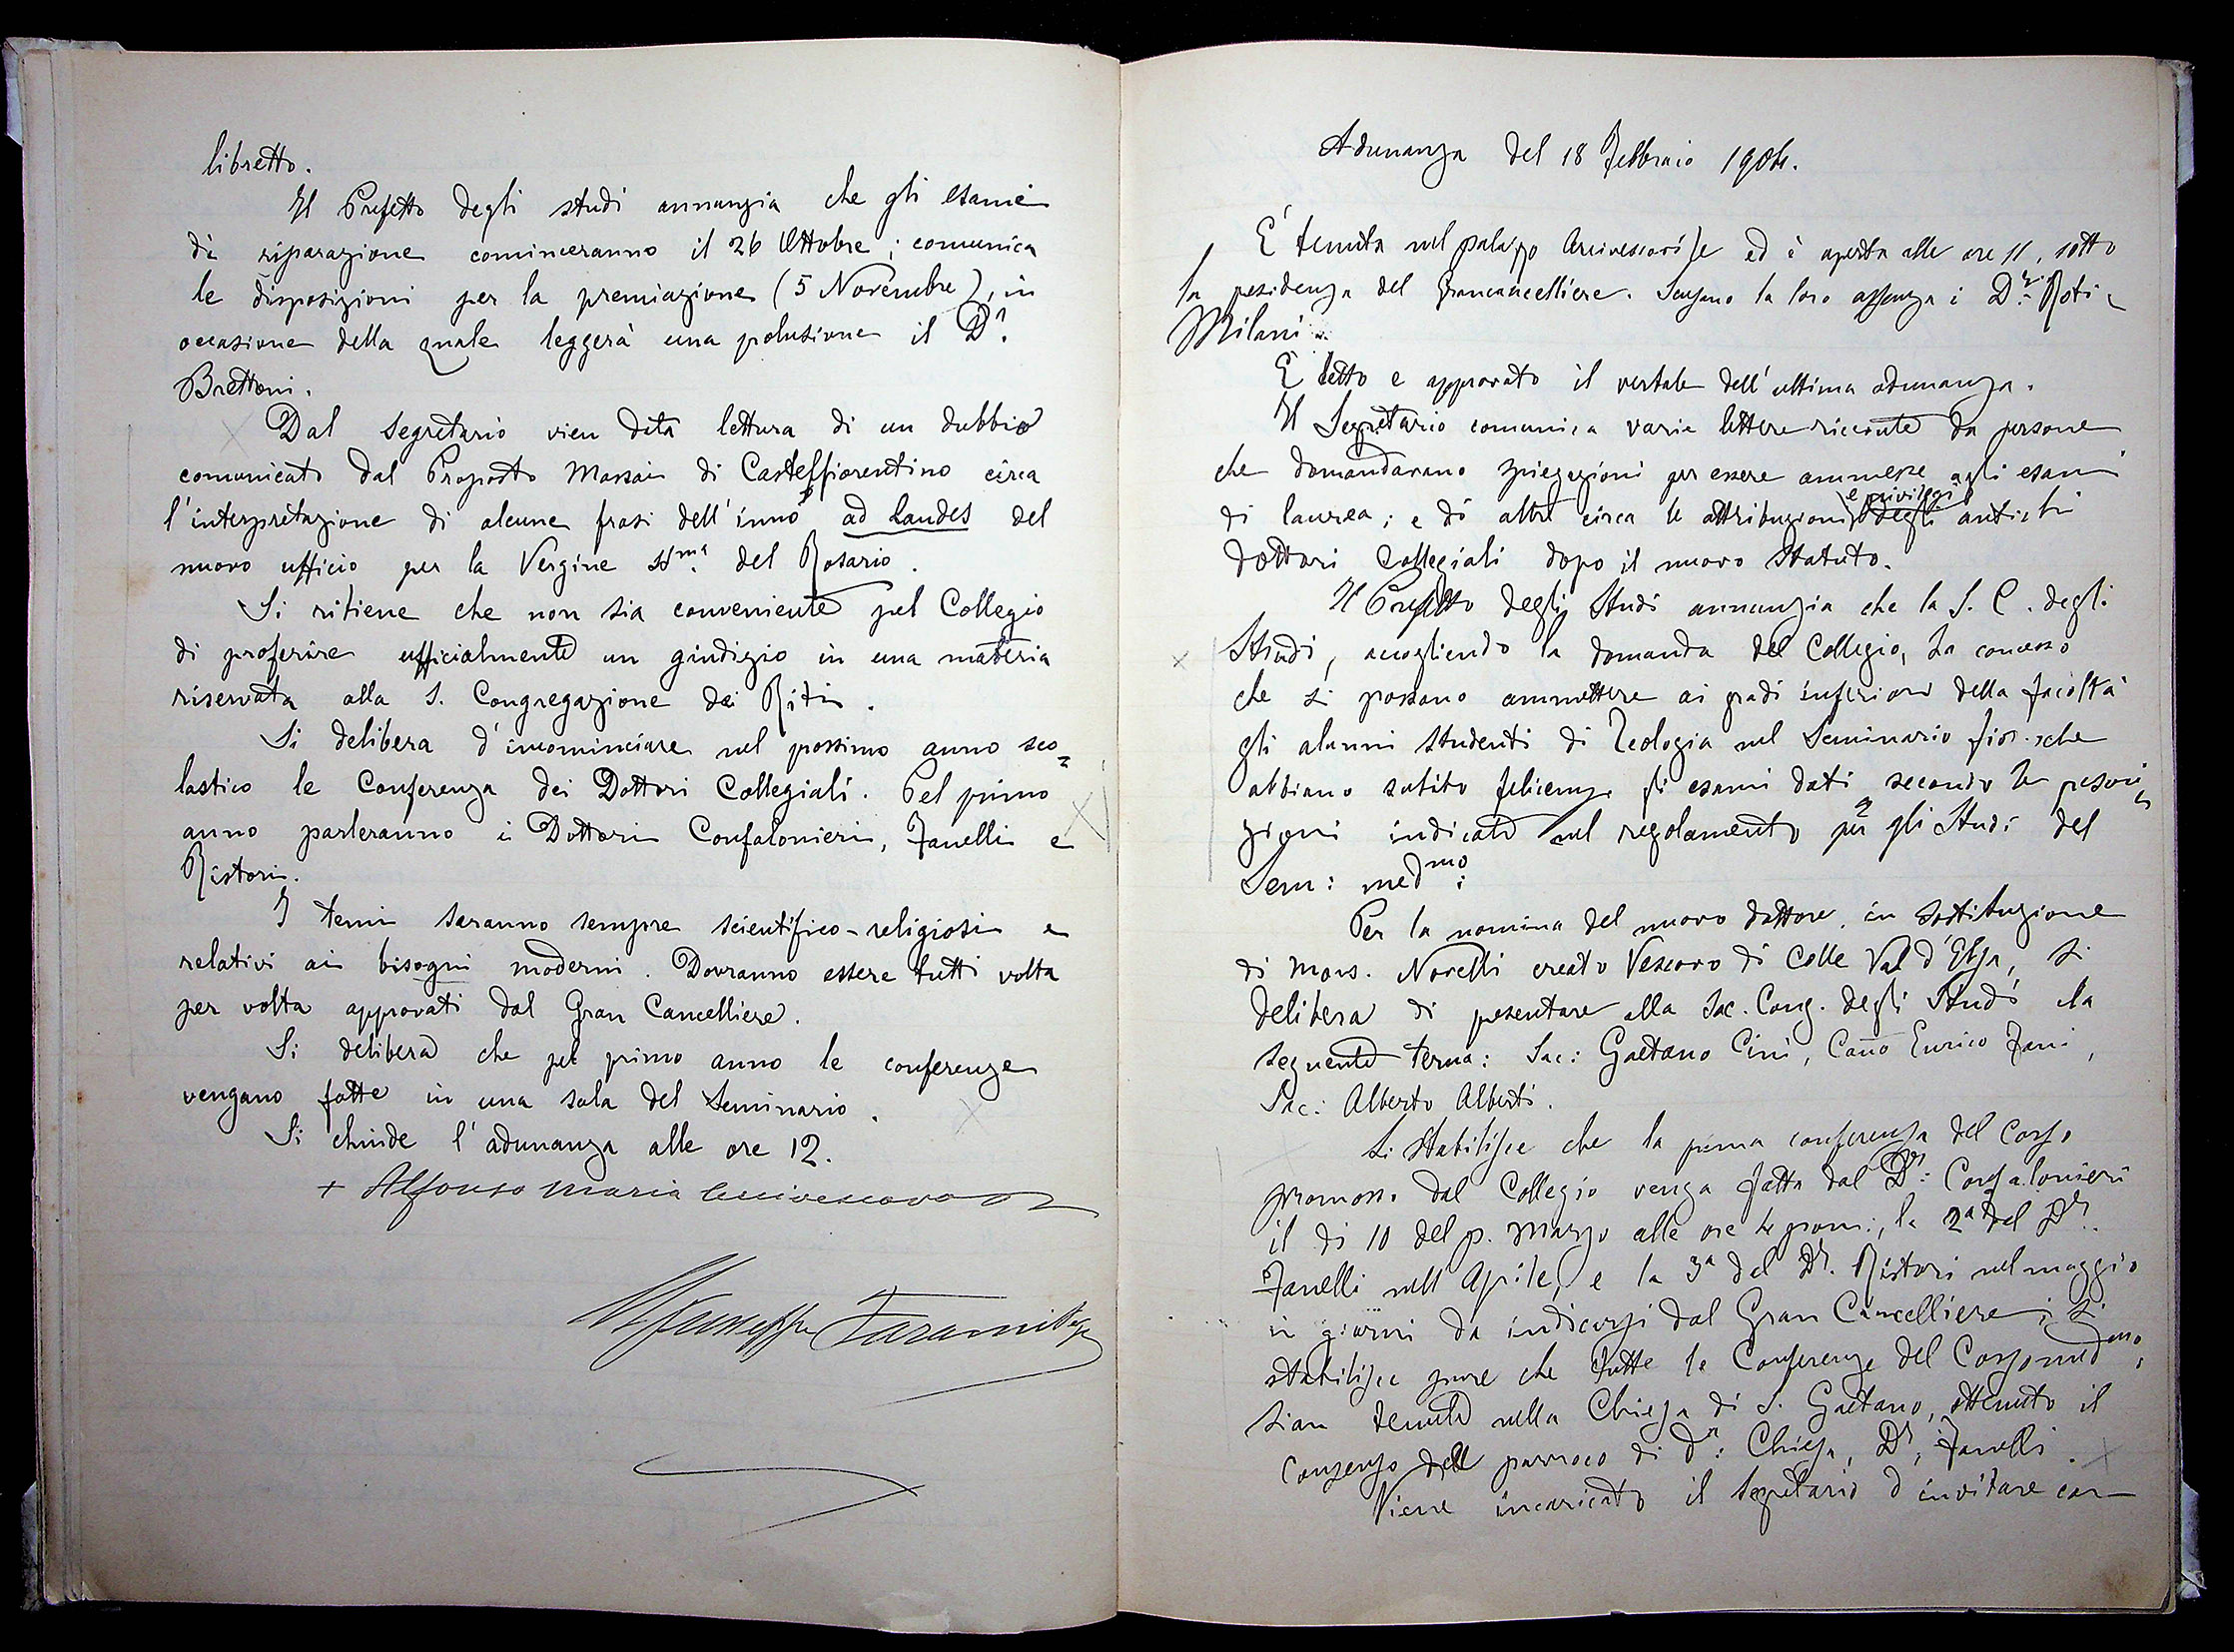 libretto.
Il Prefetto degli studi annunzia che gli esami
di riparazione cominceranno il 26 Ottobre; comunica
le disposizioni per la premiazione (5 Novembre), in
occasione della quale leggerà una prolusione il Dr.
Brettoni.
Dal Segretario vien data lettura di un dubbio
comunicato dal Proposto Marrai di Castelfiorentino circa
l'interpretazione di alcune frasi dell'inno ad Laudes del
nuovo ufficio per la Vergine SSma. del Rosario.
Si ritiene che non sia conveniente pel Collegio
di proferire ufficialmente un giudizio in una materia
riservata alla S. Congregazione dei Riti.
Si delibera d'incominciare nel prossimo anno sco=
lastico le Conferenze dei Dottori Collegiali. Pel primo
anno parleranno i Dottori Confalonieri, Fanelli e
Ristori.
I temi saranno sempre scientifico-religiosi e
relativi ai bisogni moderni. Dovranno essere tutti volta
per volta approvati dal Gran Cancelliere.
Si delibera che pel primo anno le conferenze
vengano fatte in una sala del Seminario.
Si chiude l'adunanza alle ore 12.
+ Alfonso Maria Arcivescovo
Adunanza del 18 Febbraio 1904.
E' tenuta nel palazzo Arcivescovile ed è aperta alle ore 11, sotto
la presidenza del Grancancelliere. Scusano la loro assenza i Dri. Roti e
Milani.
E' letto e approvato il verbale dell'ultima adunanza.
Il Segretario comunica varie lettere ricevute da persone
che domandavano spiegazioni per essere ammesse agli esami
di laurea; e di altri circa le attribuzioni e privilegi degli antichi
dottori Collegiali dopo il nuovo Statuto.
Il Prefetto degli Studi annunzia che la S. C. degli
Studi, accogliendo la domanda del Collegio, ha concesso
che si possano ammettere ai gradi inferiori della facoltà
gli alunni studenti di Teologia nel Seminario fior. che
abbiano subito felicem. gli esami dati secondo le prescri=
zioni indicate nel regolamento per gli Studi del
Sem: medmo:
Per la nomina del nuovo dottore in sostituzione
di Mons. Novelli creato Vescovo di Colle Val d'Elsa, si
delibera di presentare alla Sac. Cong. degli Studi la
seguente terna: Sac: Gaetano Cini, Cano Enrico Fani,
Sac: Alberto Alberti.
Si stabilisce che la prima conferenza del Corso
promosso dal Collegio venga fatta dal Dr: Confalonieri
il dì 10 del p. Marzo alle ore 4 pom:, la 2a del Dr.
Fanelli nell'Aprile, e la 3a del Dr. Ristori nel maggio
in giorni da indicarsi dal Gran Cancelliere; si
stabilisce pure che tutte le Conferenze del Corso medmo,
sian tenute nella Chiesa di S. Gaetano, ottenuto il
consenso dell parroco di da: Chiesa, Dr, Fanelli.
Viene incaricato il Segretario d'invitare con